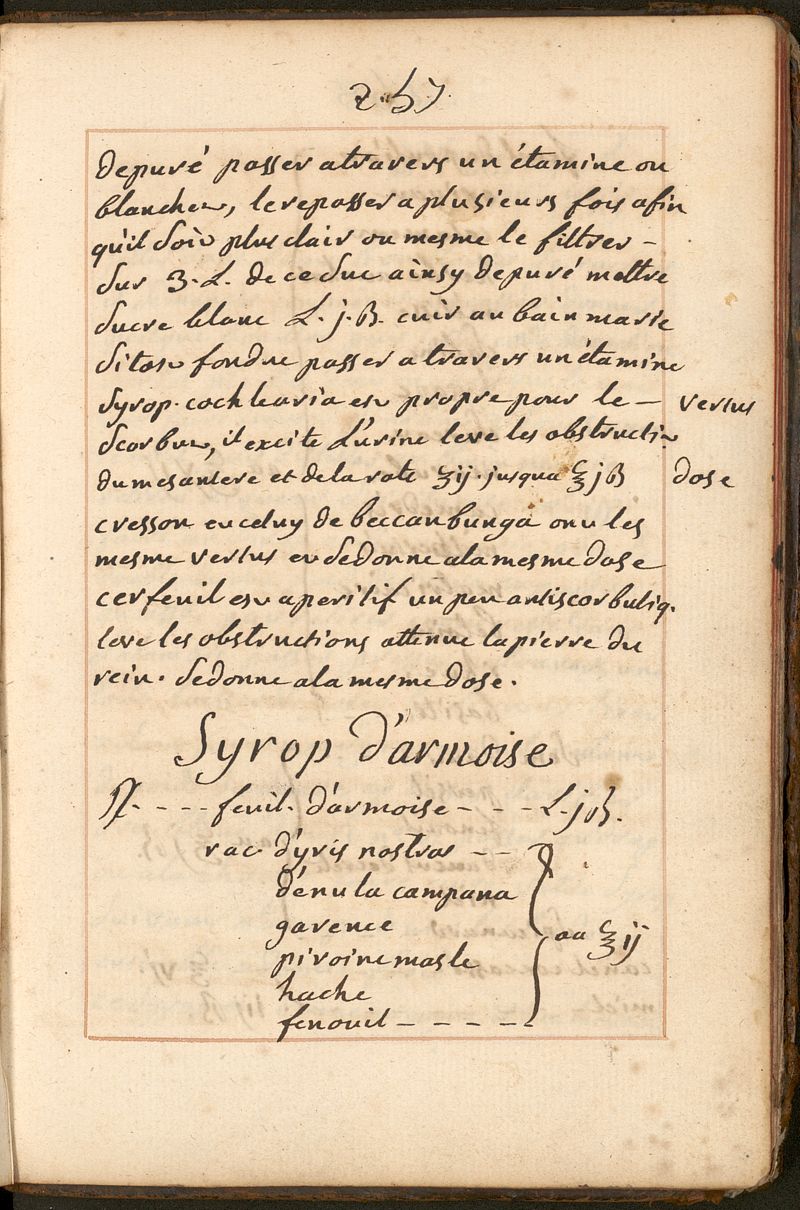 257
depuré passer atravers un étamine ou
blanchet, le repasser a plusieurs fois afin
qu'il soit plus clair ou mesme le filtrer –
sur 3. L. de ce suc ainsy depuré mettre
sucre blanc L. j. ß. cuir au bain marie
sitost fondue passer a travers un étamine
syrop. cochlearia est propre pour le – vertus
scorbut, il excite l'urine leve les obstructi~
du mesantere et de la rate ʒij. jusqua ℥jß dose
cresson et celuy de beccanbunga ont les
mesme vertus et se donne ala mesme dose
cerfeuil est aperitif un peu antiscorbutiq.
leve les obstructions attenue la pierre du
rein. se donne ala mesme dose.
Syrop d'armoise
♃. - - - feuil. d'armoise - - - L. jß.
rac d'yris nostras - -
d'énula campana
garence
pivoine masle aa ℥ij
hache
fenouil - - - - -